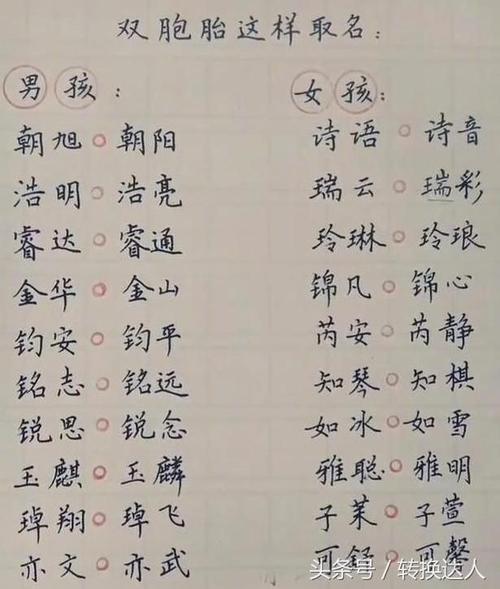 双胞胎这样取名：
男孩： 女孩：
朝旭○朝阳 诗语○诗音
浩明○浩亮 瑞云○瑞彩
睿达○睿通 玲琳○玲琅
金华○金山 锦凡○锦心
钧安○钧平 芮安○芮静
铭志○铭远 知琴○知棋
锐思○锐念 如冰○如雪
玉麒○玉麟 雅聪○雅明
琸翔○琸飞 子茉○子萱
亦文○亦武 可舒○可馨
头条号/转换达人